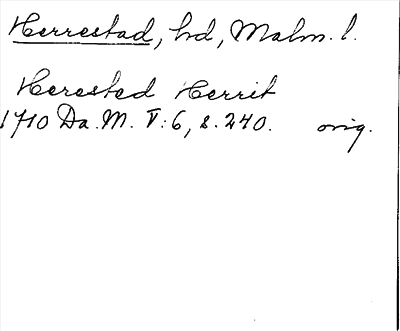 Herrestad, hd, Malm. l.
Herested Herrit
1710 Da. M. V:6, s. 240. orig.